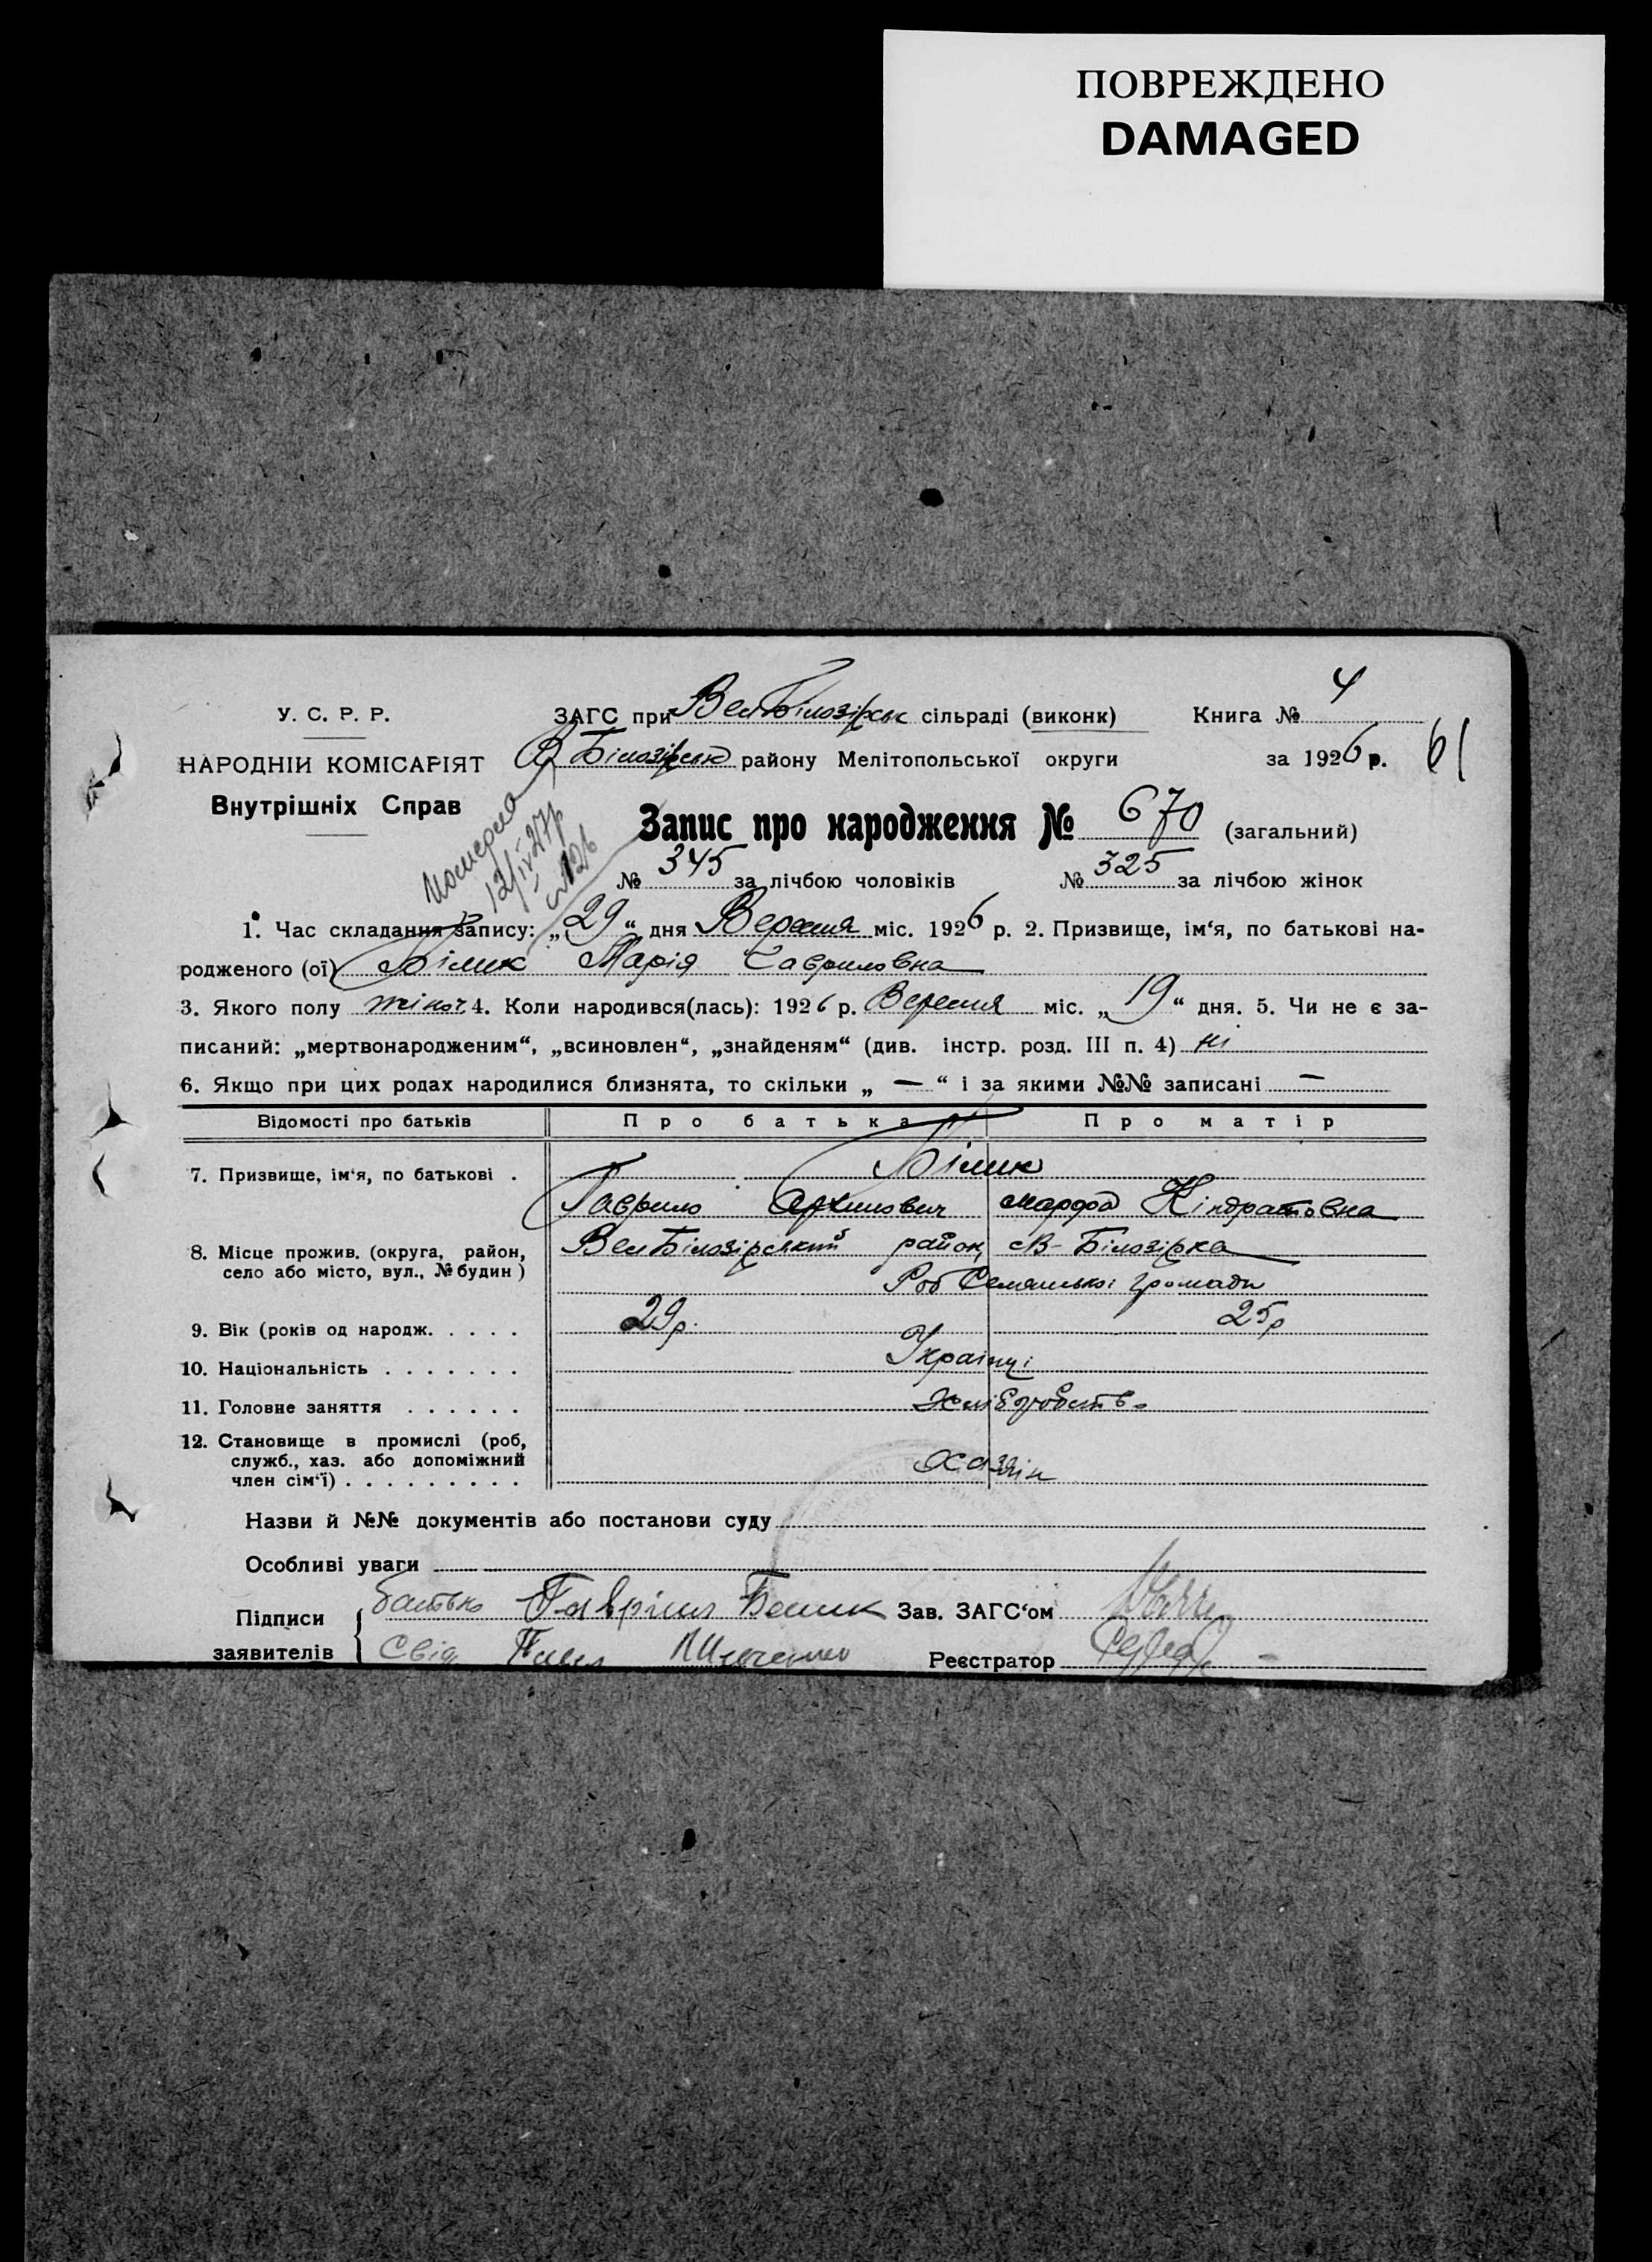 ПОВРЕЖДЕНО
DAMAGED
У. С. Р. Р.
ЗАГС при Вел Білозірськ сільраді (виконк)
Книга № 4
НАРОДНІЙ КОМІСАРІЯТ
В Білозірськ району Мелітопольської округи
за 1926 р.
61
Внутрішніх Справ
Запис про народження № 670 (загальний)
померла
12/IV 27 р
№ 345 за лічбою чоловіків
№ 325 за лічбою жінок
1. Час складання запису: „29“ дня Вересня міс. 1926 р. 2. Призвище, ім‘я, по батькові на-
родженого (ої) Білик Марія Гавриловна
3. Якого полу жіноч. 4. Коли народився(лась): 1926 р. Вересня міс. „19“ дня. 5. Чи не є за-
писаний: „мертвонародженим“, „всиновлен“, „знайденям“ (див. інстр. розд. III п. 4) ні
6. Якщо при цих родах народилися близнята, то скільки „ — “ і за якими №№ записані —
Відомості про батьків
Про батька
Про матір
7. Призвище, ім‘я, по батькові .
Білик
Гаврило Архипович
Марфа Кіндратовна
8. Місце прожив. (округа, район,
село або місто, вул., № будин)
Вел Білозірський район, В-Білозірка
громади
9. Вік (років од народж. . . . .
29 р.
25 р
10. Національність . . . . . . .
Українці
11. Головне заняття . . . . . .
Хліборобств
12. Становище в промислі (роб,
служб., хаз. або допоміжний
член сім‘ї) . . . . . . . . .
Хазяїн
Назви й №№ документів або постанови суду
Особливі уваги
Підписи
заявителів
батько Гавріил Белик
Зав. ЗАГС‘ом
Свід. Павел
Реєстратор